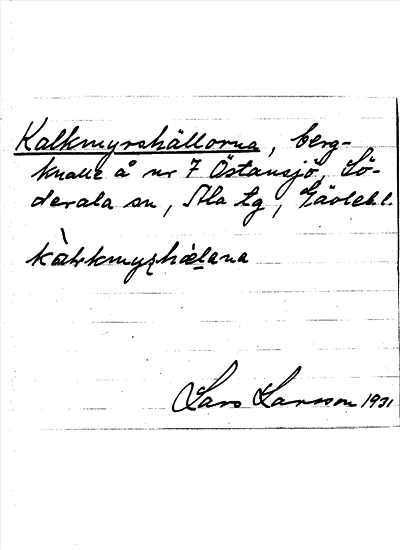 Kalkmyrshällorna, berg-
knalle å nr 7 Östansjö, Sö-
derala sn, Ala tg, Gävlebl.
Lars Larsson 1931